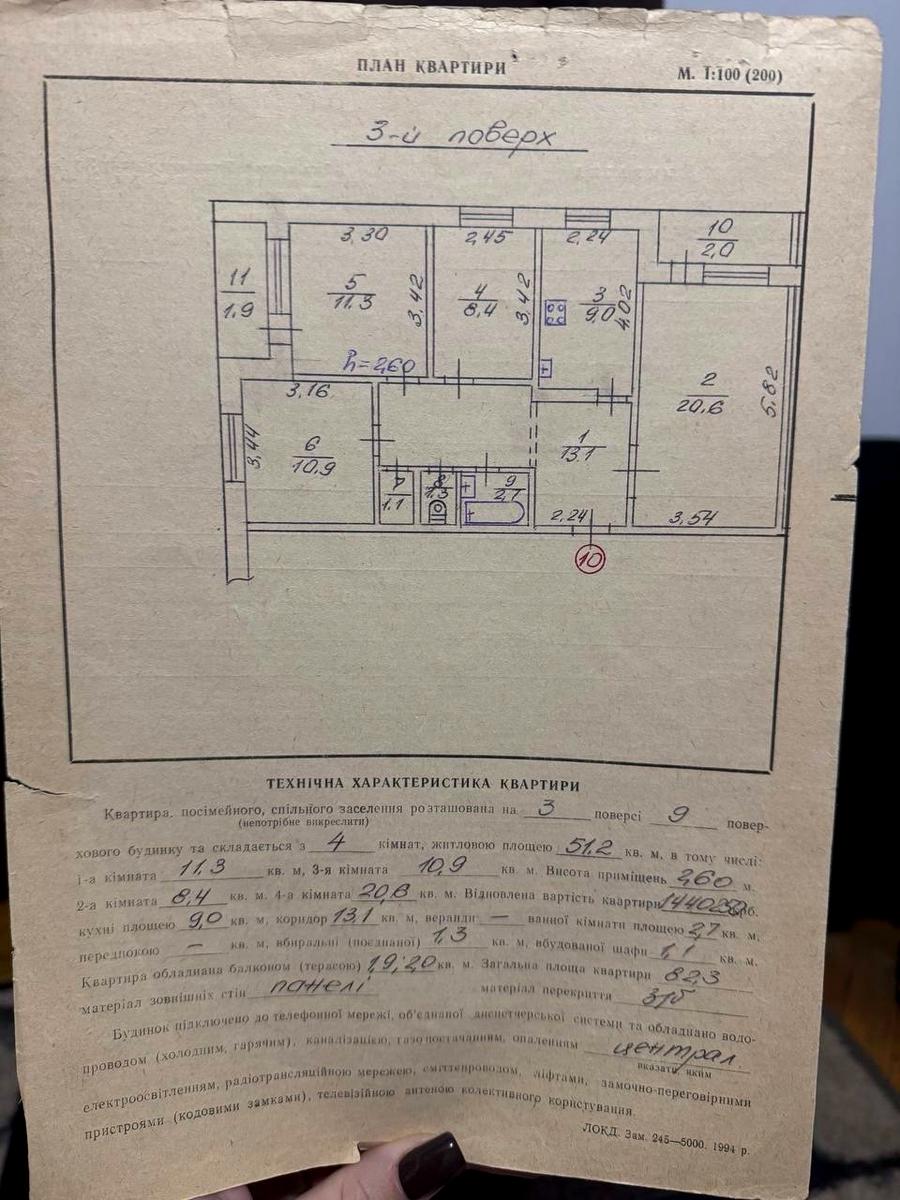 ПЛАН КВАРТИРИ
М. 1:100 (200)
3-й поверх
10
2,0
3,30
2,45
2,24
11
1.9
5
11.3
3,42
4
8,4
3,42
3
9,0
4,02
2
20,6
5,82
h=2,60
3,16
3,44
6
10,9
1
13,1
7
1.1
8
1.3
9
2,7
2,24
3,54
10
ТЕХНІЧНА ХАРАКТЕРИСТИКА КВАРТИРИ
Квартира, посімейного, спільного заселення розташована на 3 поверсі 9 повер-
(непотрібне викреслити)
хового будинку та складається з 4 кімнат, житловою площею 51,2 кв. м, в тому числі:
1-а кімната 11,3 кв. м, 3-я кімната 10,9 кв. м. Висота приміщень 2,60 м.
2-а кімната 8,4 кв. м. 4-а кімната 20,6 кв. м. Відновлена вартість квартири крб.
кухні площею 9,0 кв. м, коридор 13,1 кв. м, веранди — ванної кімнати площею 2,7 кв. м,
передпокою — кв. м, вбиральні (поєднаної) 1,3 кв. м, вбудованої шафи 1,1 кв. м.
Квартира обладнана балконом (терасою) 1,9; 2,0 кв. м. Загальна площа квартири 82,3
матеріал зовнішніх стін панелі матеріал перекриття з/б
Будинок підключено до телефонної мережі, об'єднаної диспетчерської системи та обладнано водо-
проводом (холодним, гарячим), каналізацією, газопостачанням, опаленням централ.
вказати яким
електроосвітленням, радіотрансляційною мережею, сміттепроводом, ліфтами, замочно-переговірними
пристроями (кодовими замками), телевізійною антеною колективного користування.
ЛОКД. Зам. 245—5000. 1994 р.